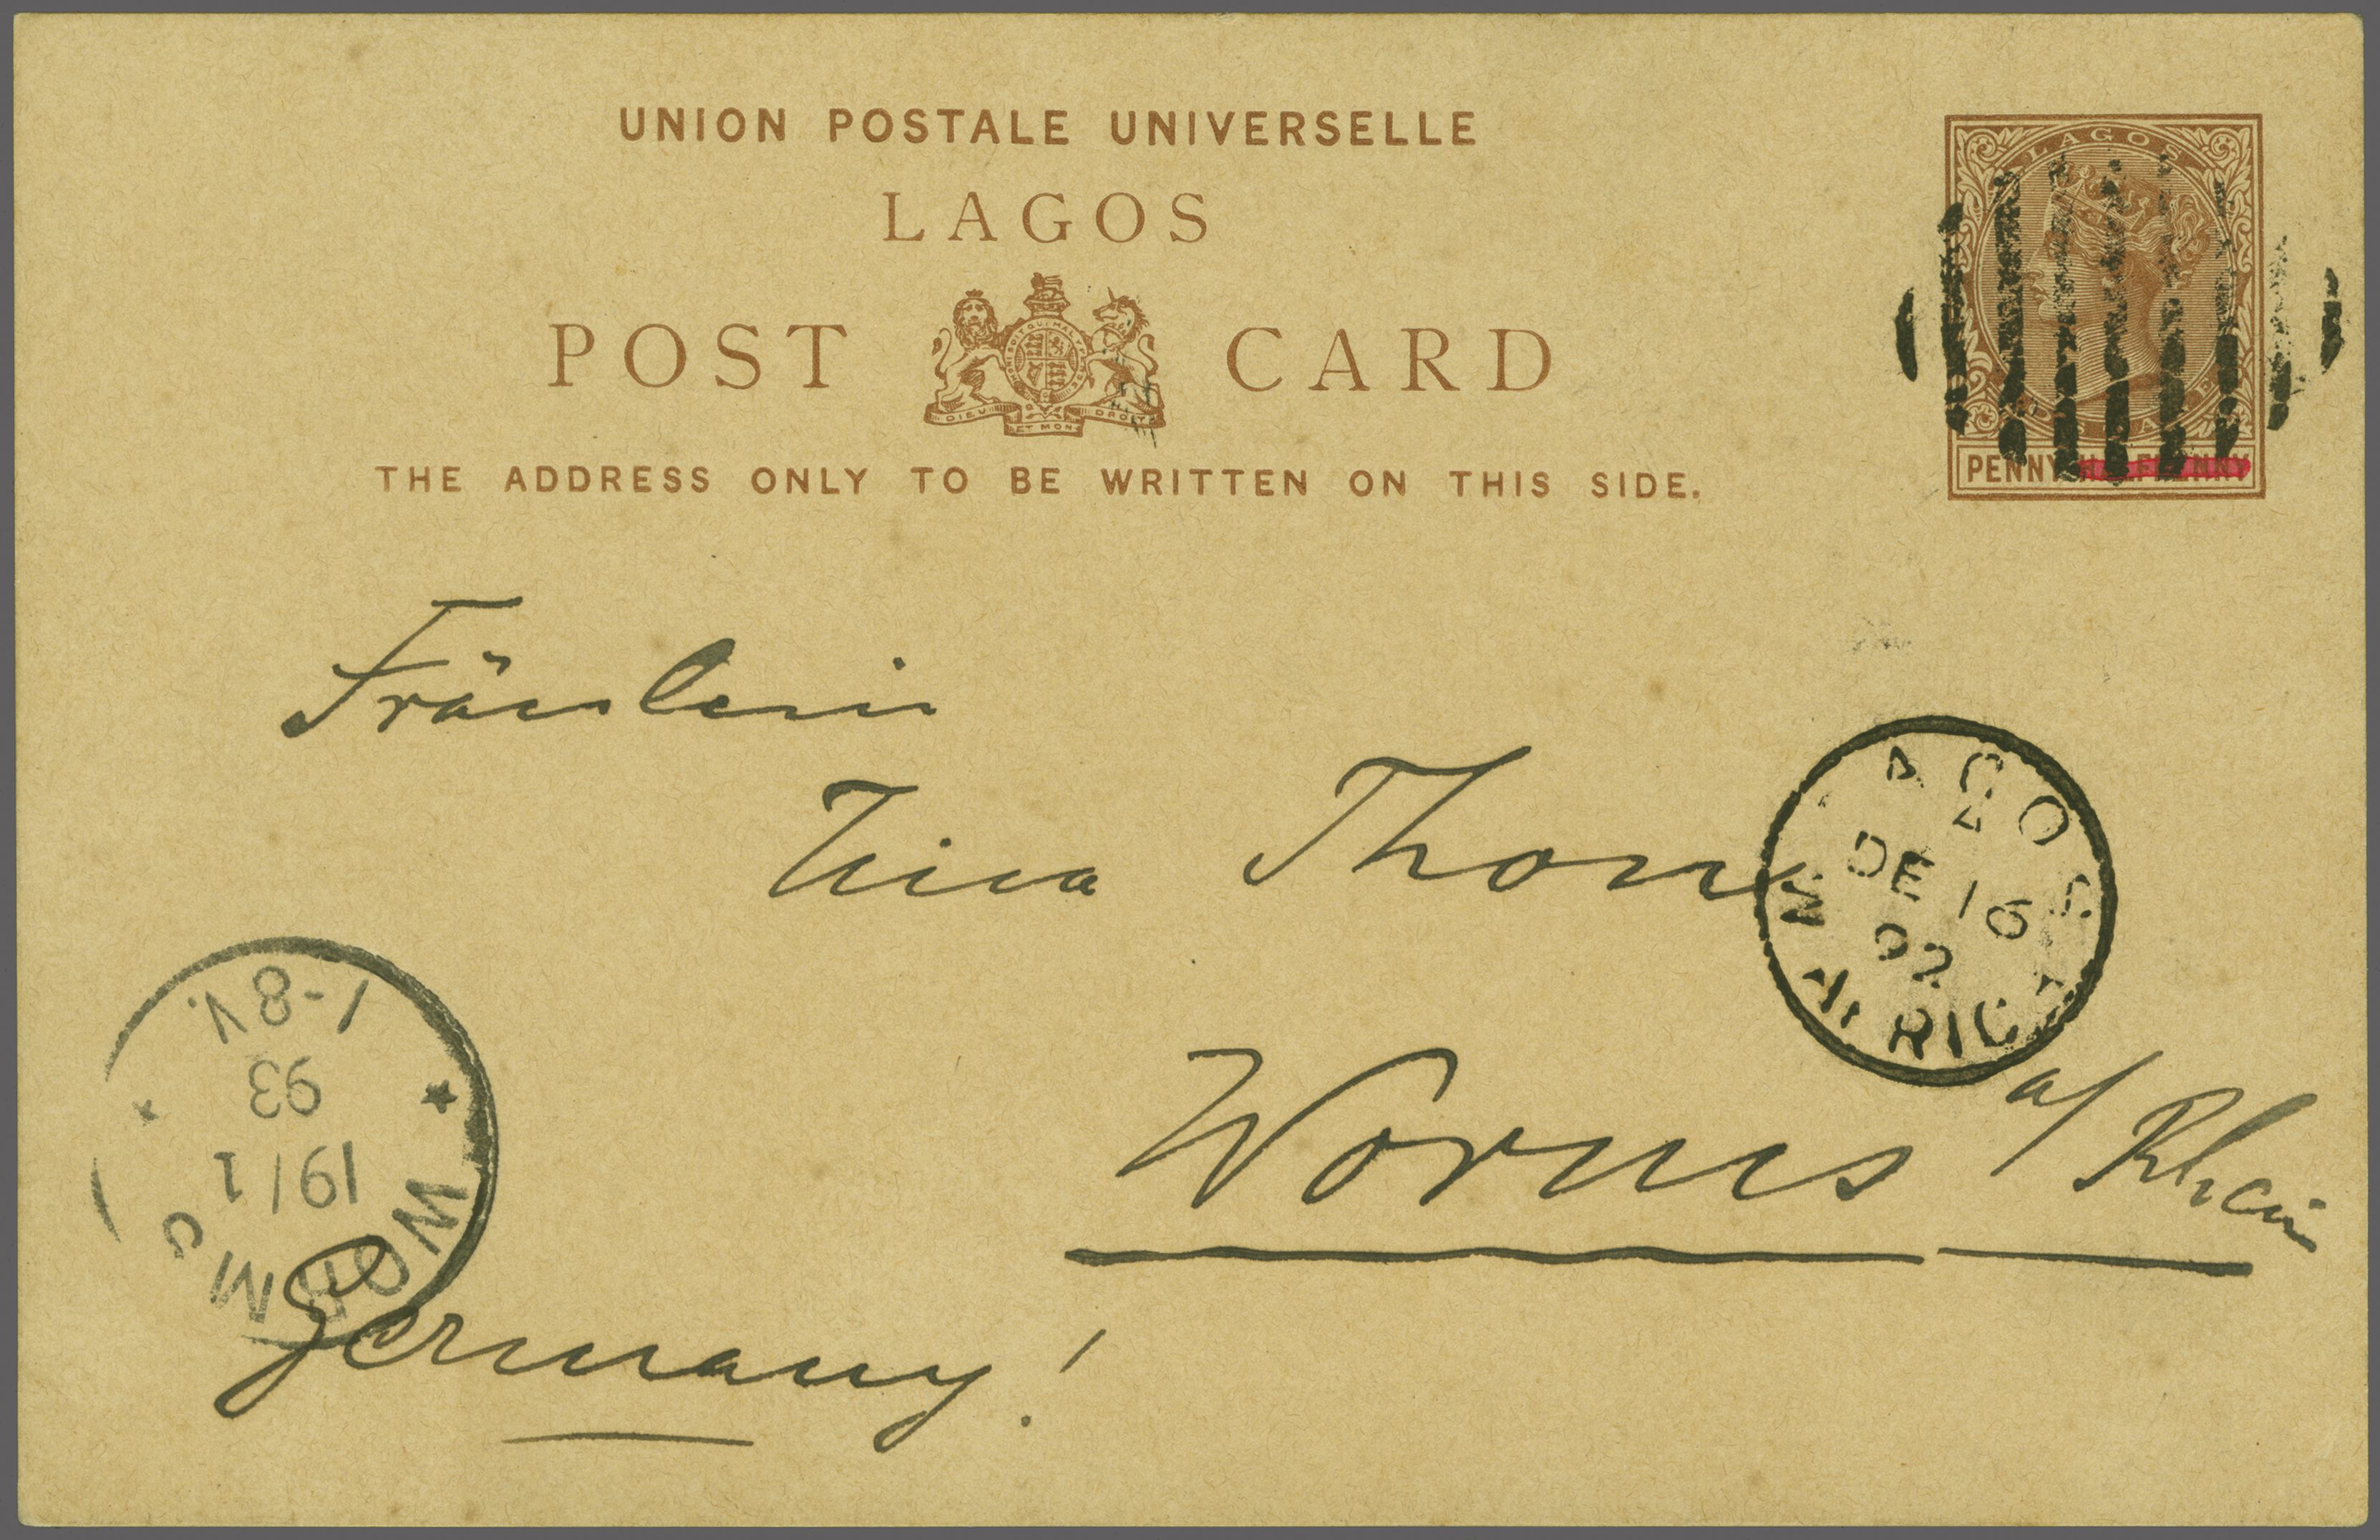 UNION POSTALE UNIVERSELLE
LAGOS
POST CARD
DIEU ET MON DROIT
THE ADDRESS ONLY TO BE WRITTEN ON THIS SIDE.
LAGOS
PENNY HALFPENNY
Fräulein
Thorn
AGOS
A
DE 16
92
W AFRICA
Worms a/Rhein
Germany!
1-8V.
93
19/1
WORMS